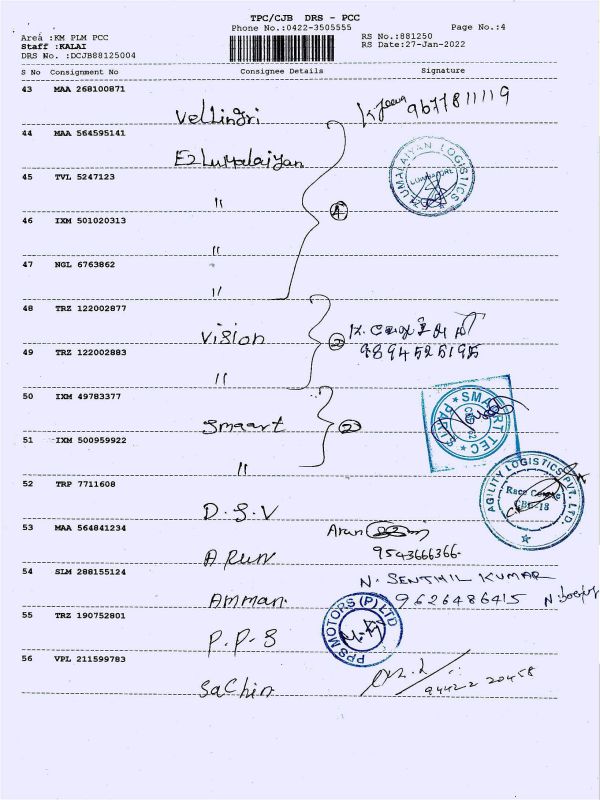 TPC/CJB DRS - PCC
Phone No.:0422-3505555
Page No.:4
Area :KM PLM PCC
RS No.:881250
Staff :KALAI
RS Date:27-Jan-2022
DRS No. :DCJB88125004
S No Consignment No Consignee Details Signature
43 MAA 268100871
Vellingri 9677811119
44 MAA 564595141
Ezhumalaiyan
UMALAIYAN LOGISTICS
COIMBATORE
45 TVL 5247123
"
46 IXM 501020313
" 4
47 NGL 6763862
"
48 TRZ 122002877
Vision 2
49 TRZ 122002883
" 9894525195
50 IXM 49783377
Smaart 2
SMAART TEC PARTS
51 IXM 500959922
"
52 TRP 7711608
D.S.V
AGILITY LOGISTICS PVT. LTD.
Race Course
CBE-18
53 MAA 564841234
Arun
A Run 9543666366
54 SLM 288155124
N. SENTHIL KUMAR
Amman 9626486415
55 TRZ 190752801
P.P.S
PPS MOTORS (P) LTD
56 VPL 211599783
Sachin 94422 20458